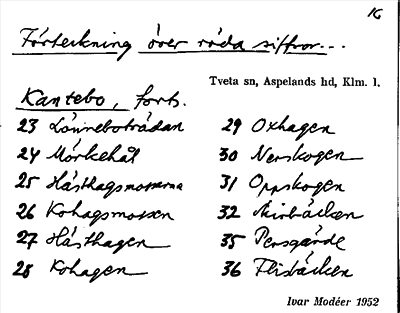 16
Förteckning över röda siffror...
Tveta sn, Aspelands hd, Klm. l.
Kantebo, forts.
23 Lönnebotrådan
24 Mörkehål
25 Hästhagsmossarna
26 Kohagsmossen
27 Hästhagen
28 Kohagen
29 Oxhagen
30 Nerskogen
31 Oppskogen
32 Skirbäcken
35 Persgärde
36 Flisbäcken
Ivar Modéer 1952